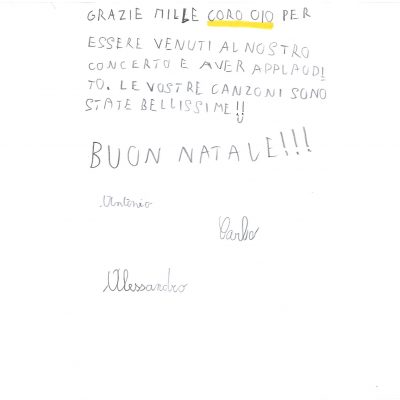 GRAZIE MILLE CORO OIO PER
ESSERE VENUTI AL NOSTRO
CONCERTO E AVER APPLAUDI
TO. LE VOSTRE CANZONI SONO
STATE BELLISSIME!!
BUON NATALE!!!
Antonio
Carlo
Alessandro